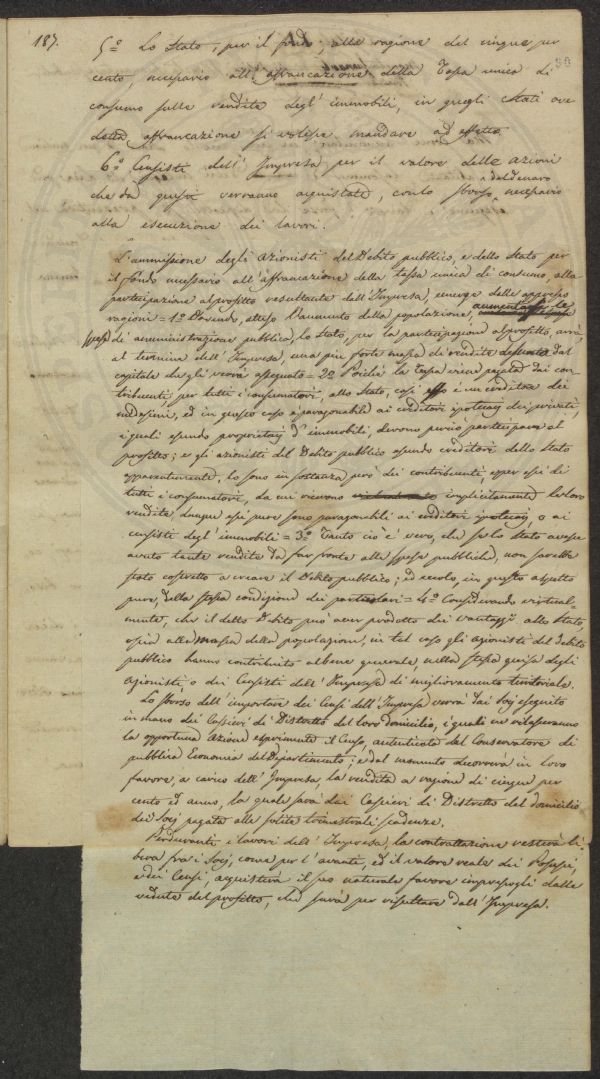 187.
5.° Lo Stato, per il fondo, alla ragione del cinque per
cento, necessario all'affrancazione della Tassa unica di
consumo sulle rendite degl'immobili, in quegli Stati ove
detta affrancazione si volesse mandare ad effetto.
6.° Censisti dell'Impresa per il valore delle azioni
che da questi verranno acquistate, contro sborso del denaro necessario
alla esecuzione dei lavori.
L'ammissione degli azionisti del Debito pubblico, e dello Stato per
il fondo necessario all'affrancazione della tassa unica di consumo, alla
partecipazione al profitto resultante dell'Impresa, emerge dalle appresso
ragioni = 1.° Dovendo, atteso l'aumento della popolazione, aumentarsi le
spese di amministrazione pubblica, lo Stato, per la partecipazione al profitto avrà,
al termine dell'Impresa, una più forte massa di rendite dal
capitale che gli verrà assegnato = 2.° Poichè la Tassa viene pagata dai con-
tribuenti, per tutti i consumatori, allo Stato, così esso è un creditore dei
medesimi, ed in questo caso è paragonabile ai creditori ipotecarj dei privati,
i quali essendo proprietarj d'immobili, devono perciò partecipare al
profitto; e gli azionisti del Debito pubblico essendo creditori dello Stato
apparentemente, lo sono in sostanza però dei contribuenti, e per essi di
tutti i consumatori, da cui ricevono implicitamente la loro
rendita, dunque essi pure sono paragonabili ai creditori ipotecarj, o ai
censisti degl'immobili = 3.° Tanto ciò è vero, che se lo Stato avesse
avuto tante rendite da far fronte alle spese pubbliche, non sarebbe
stato costretto a creare il Debito pubblico; ed eccolo, in questo aspetto
pure, della stessa condizione dei particolari = 4.° Considerando virtual-
mente, che il detto Debito può aver prodotto dei vantaggi allo Stato,
ossia alla massa della popolazione, in tal caso gli azionisti del debito
pubblico hanno contribuito al bene generale, nella stessa guisa degli
azionisti, o dei Censisti dell'Impresa di miglioramento territoriale.
Lo sborso dell'importare dei Censi dell'Impresa verrà dai Socj eseguito
in mano dei Cassieri di Distretto del loro domicilio, i quali ne rilasceranno
la opportuna Azione esprimente il Censo, autenticata dal Conservatore di
pubblica Economia del Dipartimento; e dal momento decorrerà in loro
favore, a carico dell'Impresa, la rendita a ragione di cinque per
cento ed anno, la quale sarà dai Cassieri di Distretto del domicilio
dei Socj pagata alle solite trimestrali scadenze.
Perduranti i lavori dell'Impresa, la contrattazione resterà li-
bera fra i Socj, come per l'avanti, ed il valore reale dei Possessi,
e dei Censi, acquisterà il suo naturale favore dalle
vedute del profitto, che sarà per risultare dall'Impresa.